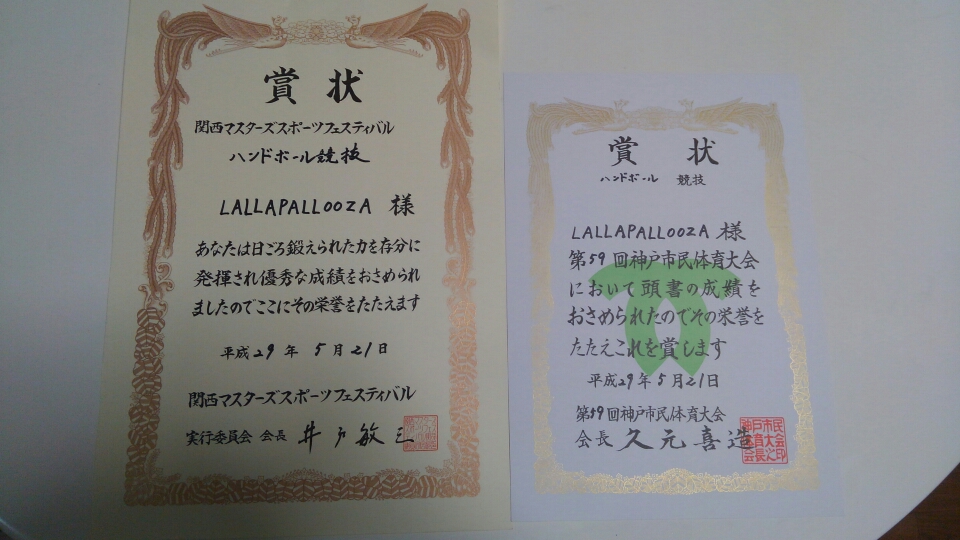 賞状
関西マスターズスポーツフェスティバル
ハンドボール競技
LALLAPALLOOZA 様
あなたは日ごろ鍛えられた力を存分に
発揮され優秀な成績をおさめられ
ましたのでここにその栄誉をたたえます
平成29年5月21日
関西マスターズスポーツフェスティバル
実行委員会 会長 井戸敏三
賞状
ハンドボール 競技
LALLAPALLOOZA 様
第59回神戸市民体育大会
において頭書の成績を
おさめられたのでその栄誉を
たたえこれを賞します
平成29年5月21日
第59回神戸市民体育大会
会長 久元喜造
神戸市民
体育大会
会長之印